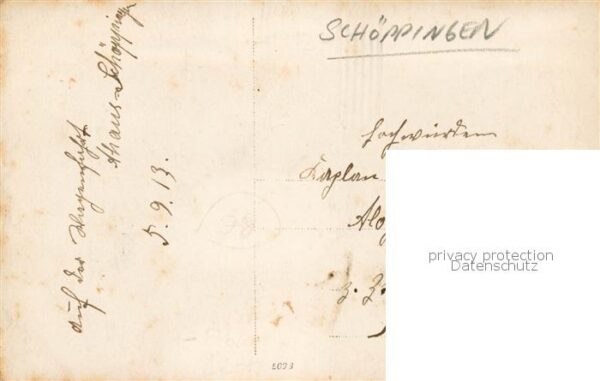 SCHÖPPINGEN
auf der Wagenfahrt
Ahaus-Schöpping
5.9.13.
Hochwürden
Kaplan
Alo
z. Z.
privacy protection
Datenschutz
5073